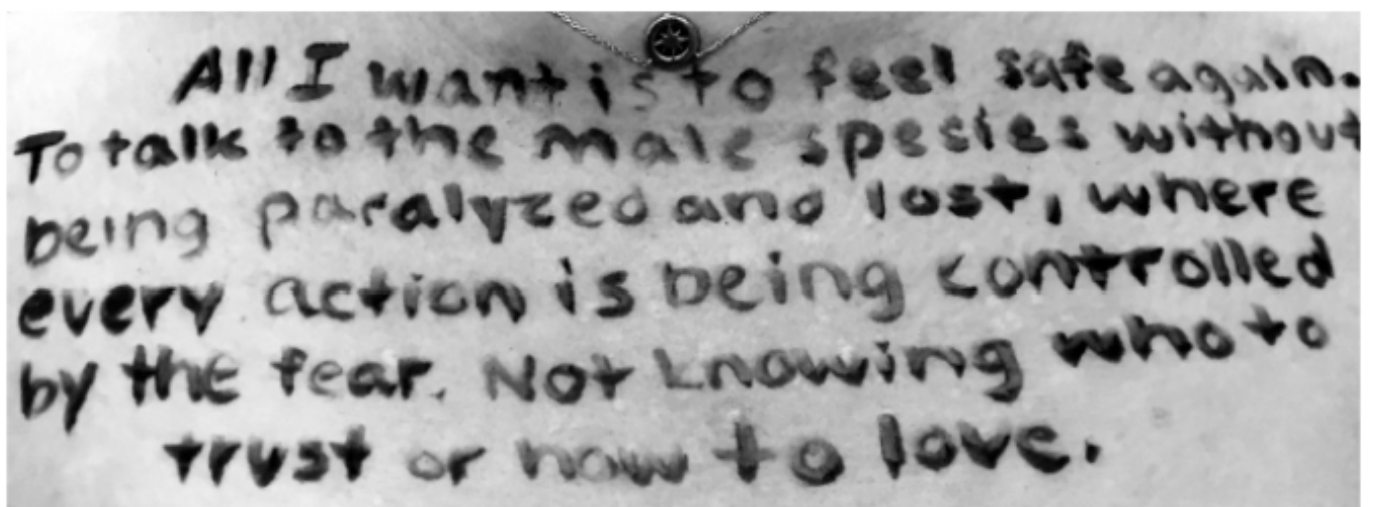 All I want is to feel safe again.
To talk to the male spesies without
being paralyzed and lost, where
every action is being controlled
by the fear. Not knowing who to
trust or how to love.